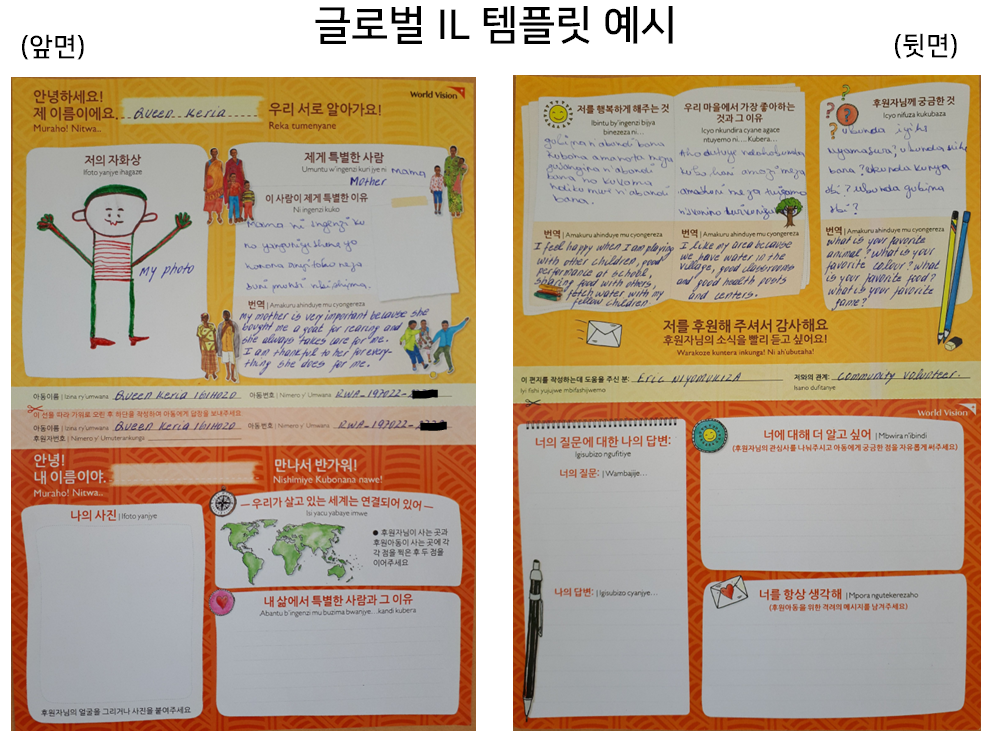 글로벌 IL 템플릿 예시
(앞면)
(뒷면)
안녕하세요!
제 이름이에요. Queen Keria
Muraho! Nitwa..
우리 서로 알아가요!
Reka tumenyane
World Vision
저의 자화상
Ifoto yanjye ihagaze
My photo
제게 특별한 사람
Umuntu w'ingenzi kuri jye ni
mama
Mother
이 사람이 제게 특별한 이유
Ni ingenzi kuko
Mama ni ingenzi ku
번역 | Amakuru ahinduye mu cyongereza
My mother is very important because she
bought me a goat for rearing and
she always takes care for me.
I am thankful to her for every-
thing she does for me.
아동이름 | Izina ry'umwana Queen Keria 161H020 아동번호 | Nimero y' Umwana RWA_197022-
이 선을 따라 가위로 오린 후 하단을 작성하여 아동에게 답장을 보내주세요
아동이름 | Izina ry'umwana Queen Keria 161H020 아동번호 | Nimero y' Umwana RWA_197022-
후원자번호 | Nimero y' Umuterankunga
안녕!
내 이름이야.
Muraho! Nitwa..
만나서 반가워!
Nishimiye Kubonana nawe!
나의 사진 | Ifoto yanjye
후원자님의 얼굴을 그리거나 사진을 붙여주세요
우리가 살고 있는 세계는 연결되어 있어
Isi yacu yabaye imwe
● 후원자님이 사는 곳과
후원아동이 사는 곳에 각
각 점을 찍은 후 두 점을
이어주세요
내 삶에서 특별한 사람과 그 이유
Abantu b'ingenzi mu buzima bwanjye...kandi kubera
저를 행복하게 해주는 것
Ibintu by'ingenzi bijya
binezeza ni...
gukina n'abandi bana
bana.
번역 | Amakuru ahinduye mu cyongereza
I feel happy when I am playing
with other children, good
performance at school,
sharing food with others,
fetch water with my
fellow children.
우리 마을에서 가장 좋아하는
것과 그 이유
Icyo nkundira cyane agace
ntuyemo ni... Kubera...
번역 | Amakuru ahinduye mu cyongereza
I like my area because
we have water in the
village, good classrooms
and good health posts
and centers.
후원자님께 궁금한 것
Icyo nifuza kukubaza
ukunda iyihe
번역 | Amakuru ahinduye mu cyongereza
What is your favorite
animal? What is your
favorite colour? What
is your favorite food?
What is your favorite
game?
저를 후원해 주셔서 감사해요
후원자님의 소식을 빨리 듣고 싶어요!
Warakoze kuntera inkunga! Ni ah'ubutaha!
이 편지를 작성하는데 도움을 주신 분: Eric NIYOMUKIZA 저와의 관계: Community volunteer.
Iyi fishi yujujwe mbifashijwemo Isano dufitanye
World Vision
너의 질문에 대한 나의 답변:
Igisubizo ngufitiye
너의 질문: | Wambajije...
나의 답변: | Igisubizo cyanjye...
너에 대해 더 알고 싶어 | Mbwira n'ibindi
(후원자님의 관심사를 나눠주시고 아동에게 궁금한 점을 자유롭게 써주세요)
너를 항상 생각해 | Mpora ngutekerezaho
(후원아동을 위한 격려의 메시지를 남겨주세요)